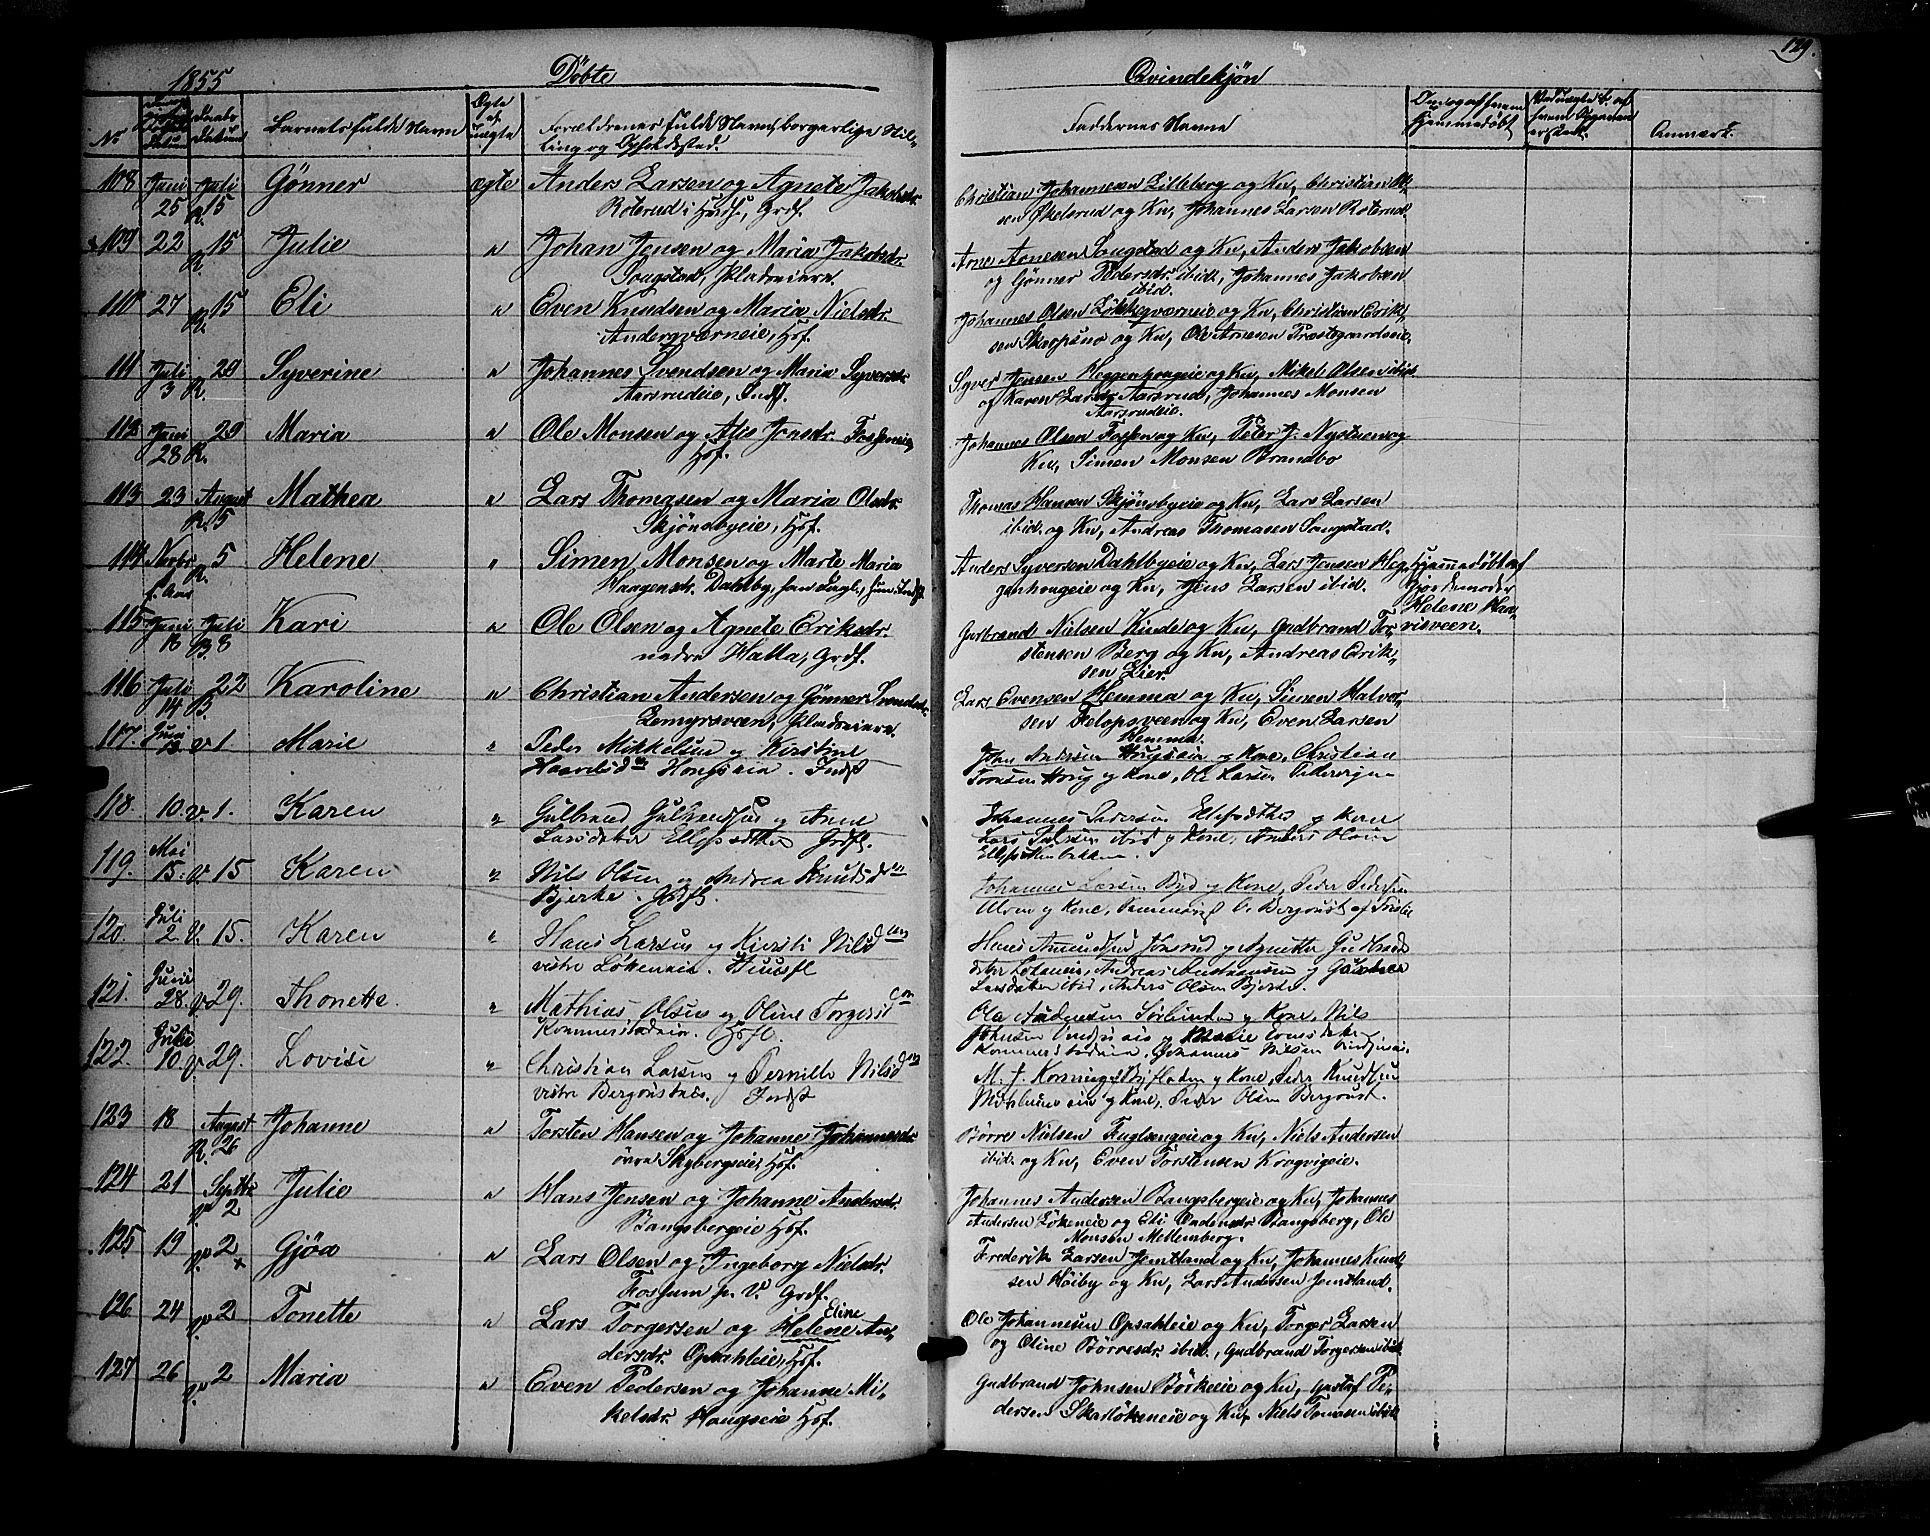 129.
1855 Döbte Qvindekjön
No Daabs Datum Barnets fulde Navn Ægte el. uægte Forældrenes fulde Navne, borgerlige Stilling og Opholdssted. Faddernes Navne Om og af hvem hjemmedöbt Anmærk.
108 Juni 25 Juli R. 15 Gönner ægte Anders Larsen og Agnete Jakobsdr.
Roterud i Grdf.
Christian Johannesen Lilleberg og Kn, Christian Ol-
sen Skelsrud og Kn, Johannes Larsen Roterud.
109 22 R. 15 Julie " Johan Jensen og Maria Jakobsdr.
Sougstad, Pladseiere.
Arnes Arnesen Sougstad og Kn, Anders Jakobsen
og Gönner Pedersdr. ibid, Johannes Jakobsen
ibid.
110 27 R. 15 Eli " Even Knudsen og Maria Nielsdr.
Andergværneie, Hsf.
Johannes Olsen Lökkegværneie og Kn, Christian Erik-
sen Skarpsno og Kn, Ole Arnesen Præstegaardseie.
111 Juli 3 R. 29 Syverine " Johannes Svendsen og Maria Syversdr.
Aarsrudeie, Indf.
Syver Jensen Heggenhougeie og Kn, Mikel Olsen ibid
og Karen Larsdr. Aarsrud, Johannes Monsen
Aarsrudeie.
112 Juni 28 R. 29 Maria " Ole Monsen og Alis Jonsdr. Fossumeie
Hsf.
Johannes Olsen Fossum og Kn, Peter J. Nystuen og
Kn, Simen Monsen Brandbo
113 23 August R. 5 Mathea " Lars Thomasen og Maria Olsdr.
Skjönsbyeie, Hsf.
Thomas Hansen Skjönsbyeie og Kn, Lars Larsen
ibid. og Kn, Andreas Thomasen Sougstad.
114 Novbr. f. Aar R. 5 Helene " Simen Monsen og Marte Maria
Haagensdr. Dahlby, han Ungk., hun Indf.
Anders Syversen Dahlbyeie og Kn, Lars Jensen Heg-
genhougeie og Kn, Jens Larsen ibid.
Hjemmedöbt af
Gjordemoder
Helene Haa-
risveen.
115 Juni 16 Juli B. 8 Kari " Ole Olsen og Agnete Eriksdr.
nedre Halla, Grdf.
Gudbrand Nielsen Kinde og Kn, Gudbrand Tor-
stensen Berg og Kn, Andreas Erik-
sen Lier.
116 Juli 14 B. 22 Karoline " Christian Andersen og Gönner Svendsdr.
Lemyrsveen, Pladseiere.
Lars Evensen Hemma og Kn, Simen Halvor-
sen Felopsveen og Kn, Even Larsen
Hemma.
117 Juni 13 V. 1 Marie " Peder Mikkelsen og Kirstine
Haavelsdtr Hougseie. Indst
John Andersen Hougseie og Kone, Christian
Tomsen Houg og Kone, Ole Larsen
118. 10. V. 1. Karen " Gulbrand Gulbrandsen og Anne
Larsdatter Ellefsætther Grdfl.
Johannes Pedersen Ellefsæther og Kone
Lars Larsen ibid og Kone, Anders Olsen
Ellefsætherbakken.
119. Mai 15. V. 15 Karen " Nils Olsen og Andrea Knudsdtr
Bjerke. Grdfl.
Johannes Larsen Byd og Kone, Peder Pedersen
Alven og Kone, O. Bergquist af
120. Juli 2. V. 15. Karen " Hans Larsen og Kiersti Nilsdtr
vestre Lökeneie. Huusfl
Hans Amundsen Fonsrud og Agnette Gulbrands
datter Lökeneie, Andreas Christiansen og Gunhild
Larsdatter ibid, Anders Olsen Bjerke.
121. Juni 28. V. 29. Thonette. " Mathias Olsen og Oline Torgersdtr
Kommerstadeie. Hsfl.
Ole Andersen Sörlunden og Kone, Nils
Johansen og Marie Tomesdatter
Kommerstadeie, Johannes Nilsen
122. Julie 10. V. 29. Lovise " Christian Larsen og Pernille Nilsdtr
vestre Bergqustnes. Indst
M. J. Korsning og Kone, Peder Knudsen
og Kone, Peder Olsen Bergqust.
123 18 August R. 26 Johanne " Torsten Hansen og Johanne Johannesdr.
övre Skybergseie, Hsf.
Börre Nielsen Fuglsengeie og Kn, Niels Andersen
ibid. og Kn, Even Torstensen Krogvigeie.
124 21 Septbr V. 2 Julie " Hans Jensen og Johanne Andersdr.
Bangsbergeie Hsf.
Johannes Andersen Bangsbergeie og Kn, Johannes
Andersen Lökeneie og Eli Bangsberg, Ole
Monsen Mellemberg.
125 19 V. 2 Gjöa " Lars Olsen og Ingeborg Nielsdr.
Fossum p. V. Grdf.
Frederik Larsen Jemtland og Kn, Johannes Knud-
sen Höiby og Kn, Lars Andersen Jemtland.
126 24 V. 2 Tonette " Lars Torgersen og Helene Eline An-
dersdr. Opsahleie, Hsf.
Ole Johannesen Opsahleie og Kn, Torger Larsen
og Oline Börresdr. ibid., Gudbrand Torgersen ibid
127 26 V. 2 Maria " Even Pedersen og Johanne Mi-
kelsdr. Hougseie Hsf.
Gudbrand Johnsen Börkeeie og Kn, Gustaf Pe-
dersen Skarlökeneie og Kn, Niels Tomasen ibid